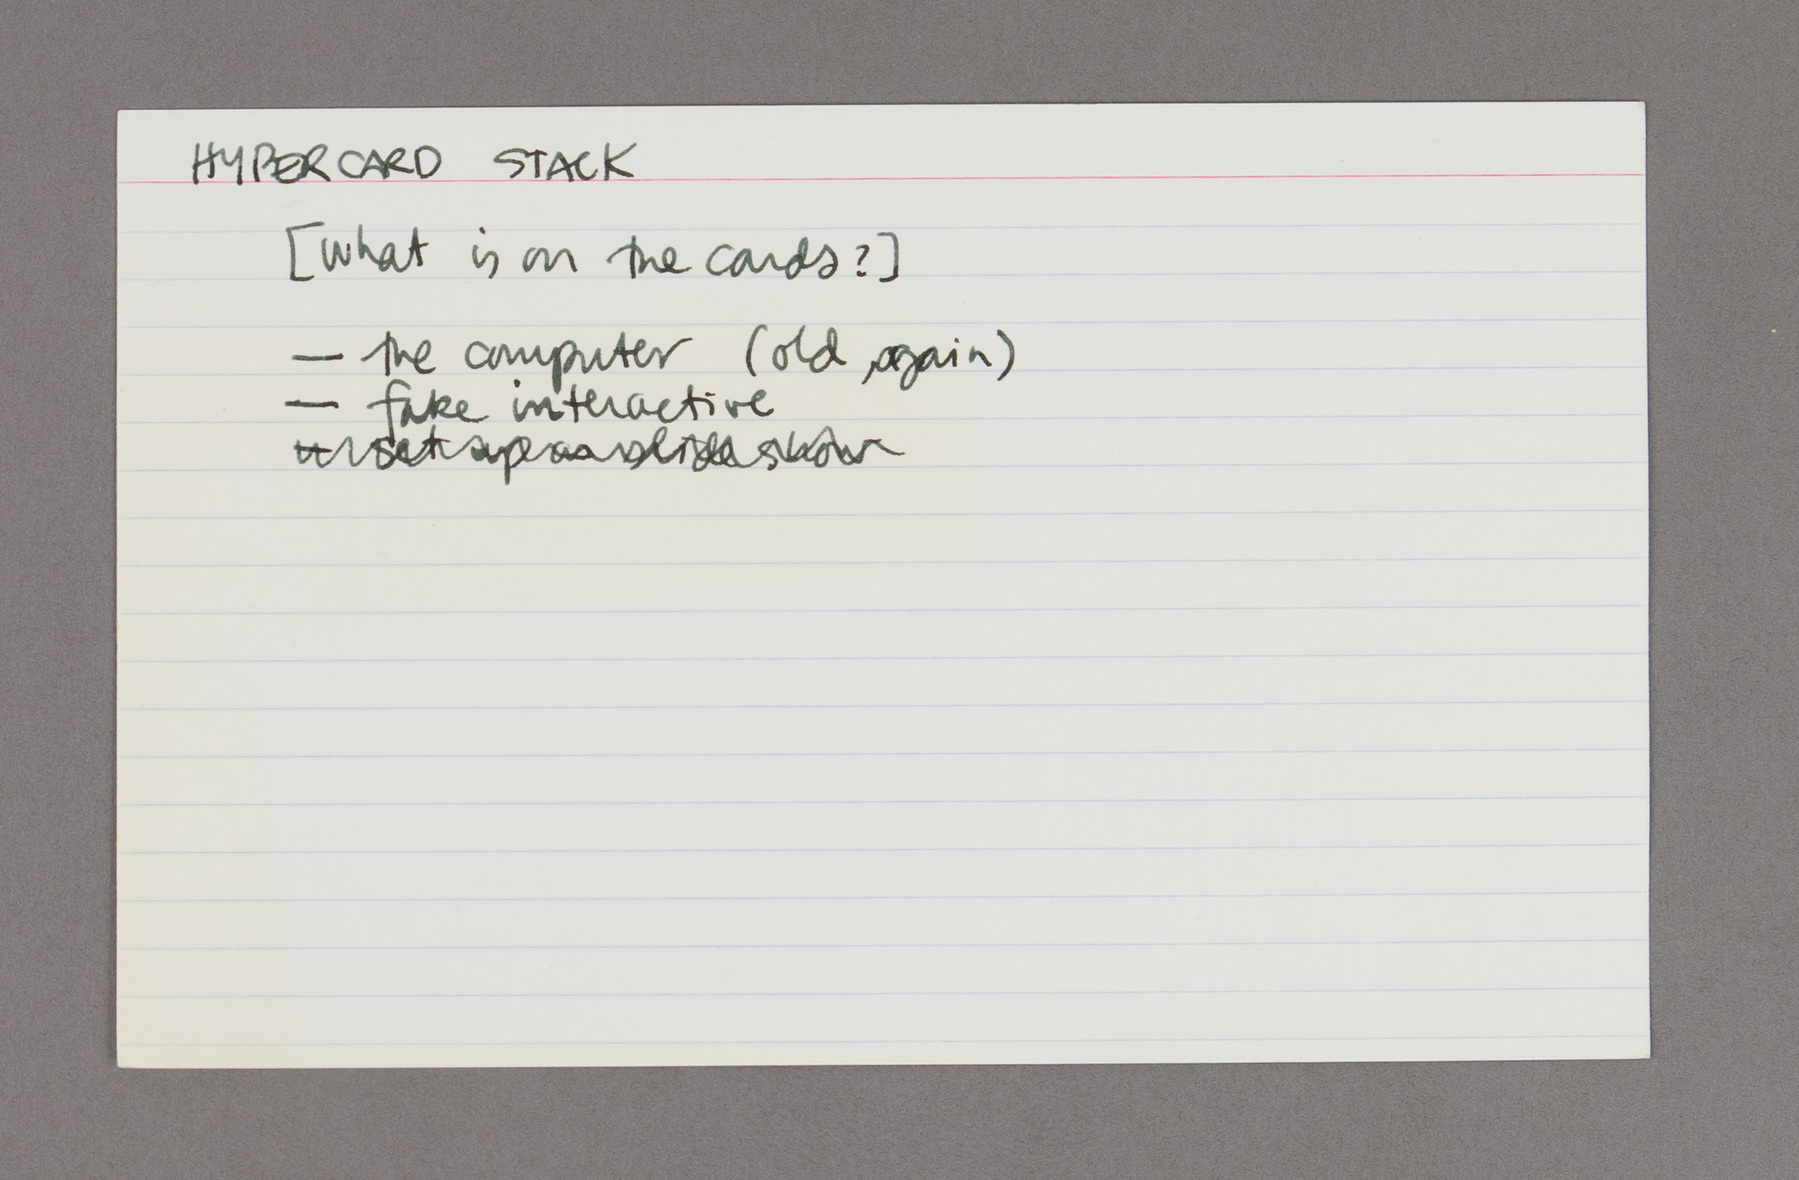 HYPERCARD STACK
[What is on the cards?]
— the computer (old, again)
— fake interactive
set up as a slide show